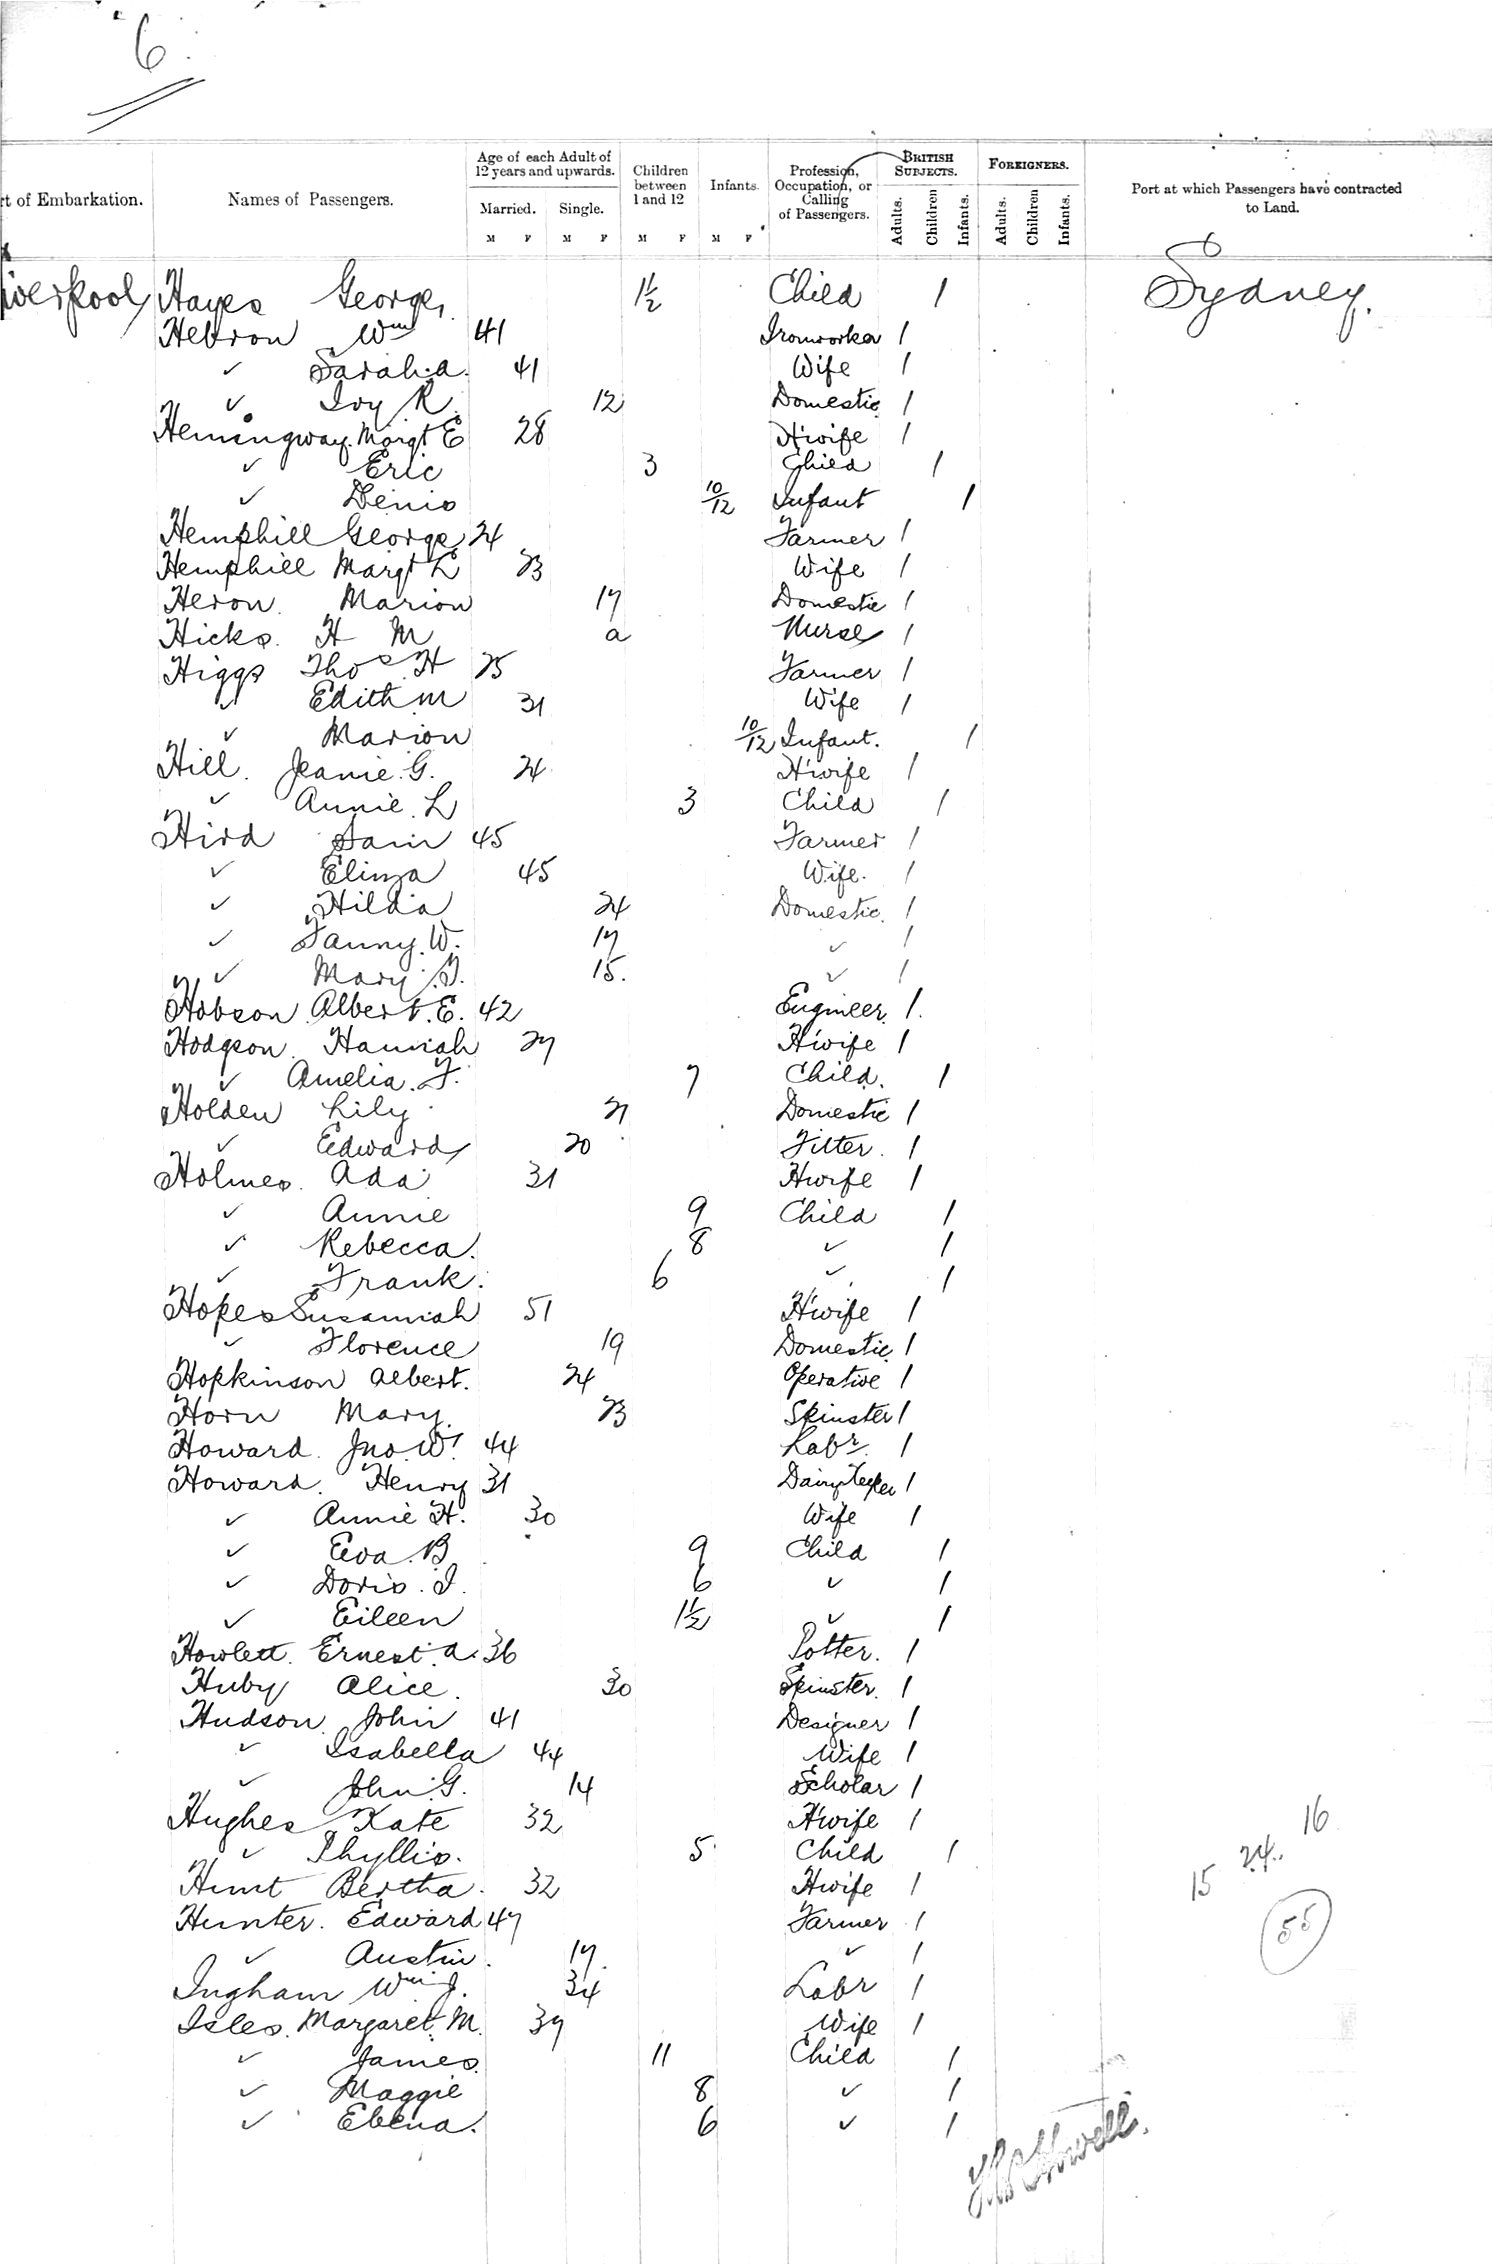 6
Age of each Adult of 12 years and upwards. Children between 1 and 12 Infants. Profession, Occupation, or Calling of Passengers. BRITISH SUBJECTS. FOREIGNERS.
t of Embarkation. Names of Passengers. Married. Single. Adults. Children Infants. Adults. Children Infants. Port at which Passengers have contracted to Land.
M F M F M F M F
iverpool Hayes George 1½ Child 1 Sydney.
Hebron Wm 41 Ironworker 1
✓ Sarah.a. 41 Wife 1
✓ Ivy R 12 Domestic 1
Hemingway Margt E 28 H'wife 1
✓ Eric 3 Child 1
✓ Denis 10/12 Infant 1
Hemphill George 24 Farmer 1
Hemphill Margt L 23 Wife 1
Heron. Marion 17 Domestic 1
Hicks. H M a Nurse 1
Higgs Thos H 25 Farmer 1
✓ Edith M 31 Wife 1
✓ Marion 10/12 Infant. 1
Hill. Jeanie.G. 24 H'wife 1
✓ Annie.L 3 Child 1
Hird Sam 45 Farmer 1
✓ Eliza 45 Wife. 1
✓ Hilda 24 Domestic. 1
✓ Fanny.W. 17 ✓ 1
✓ Mary. 15. ✓ 1
Hobson Albert.E. 42 Engineer 1.
Hodgson. Hannah 27 H'wife 1
✓ Amelia.F. 7 Child. 1
Holden Lily 21 Domestic 1
✓ Edward 20 Fitter. 1
Holmes. Ada 31 Hwife 1
✓ Annie 9 Child 1
✓ Rebecca. 8 ✓ 1
✓ Frank. 6 ✓ 1
Hopes Susannah 51 H'wife 1
✓ Florence 19 Domestic 1
Hopkinson Albert. 24 Operative 1
Horn Mary. 23 Spinster 1
Howard. Jno.W. 44 Labr. 1
Howard. Henry 31 Dairy Keeper 1
✓ Annie H. 30 Wife 1
✓ Eva.B 9 Child 1
✓ Doris.I. 6 ✓ 1
✓ Eileen 1½ ✓ 1
Howlett. Ernest.a. 36 Potter. 1
Huby Alice. 30 Spinster. 1
Hudson. John 41 Designer 1
✓ Isabella 44 Wife 1
✓ John.G. 14 Scholar 1
Hughes Kate 32 H'wife 1 16
✓ Phyllis. 5 Child 1 24.
Hunt Bertha. 32 Hwife 1 15
Hunter. Edward 47 Farmer 1 55
✓ Austin. 17. ✓ 1
Ingham Wm J. 34 Labr 1
Isles. Margaret.M. 37 Wife 1
✓ James. 11 Child 1
✓ Maggie 8 ✓ 1
✓ Ebena. 6 ✓ 1